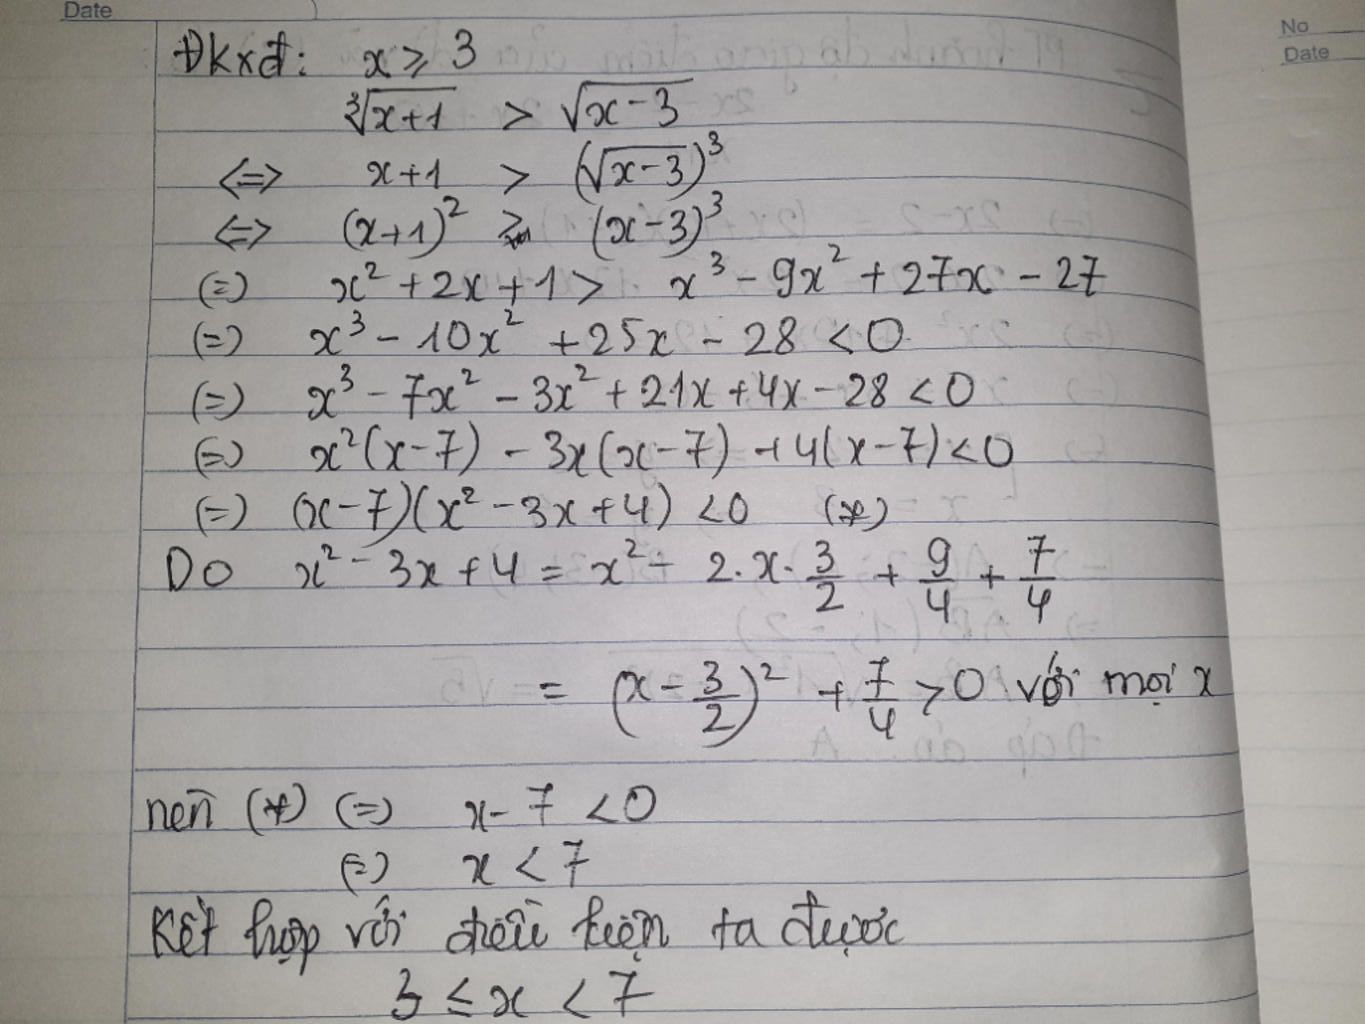 Date
No
Date
Đkxđ: x ≥ 3
∛(x+1) > √(x-3)
<=> x+1 > (√(x-3))³
<=> (x+1)² > (x-3)³
(=) x² + 2x + 1 > x³ - 9x² + 27x - 27
(=) x³ - 10x² + 25x - 28 < 0
(=) x³ - 7x² - 3x² + 21x + 4x - 28 < 0
(=) x²(x-7) - 3x(x-7) + 4(x-7) < 0
(=) (x-7)(x² - 3x + 4) < 0 (*)
Do x² - 3x + 4 = x² - 2.x.3/2 + 9/4 + 7/4
= (x - 3/2)² + 7/4 > 0 với mọi x
nên (*) (=) x - 7 < 0
(=) x < 7
Kết hợp với điều kiện ta được
3 ≤ x < 7